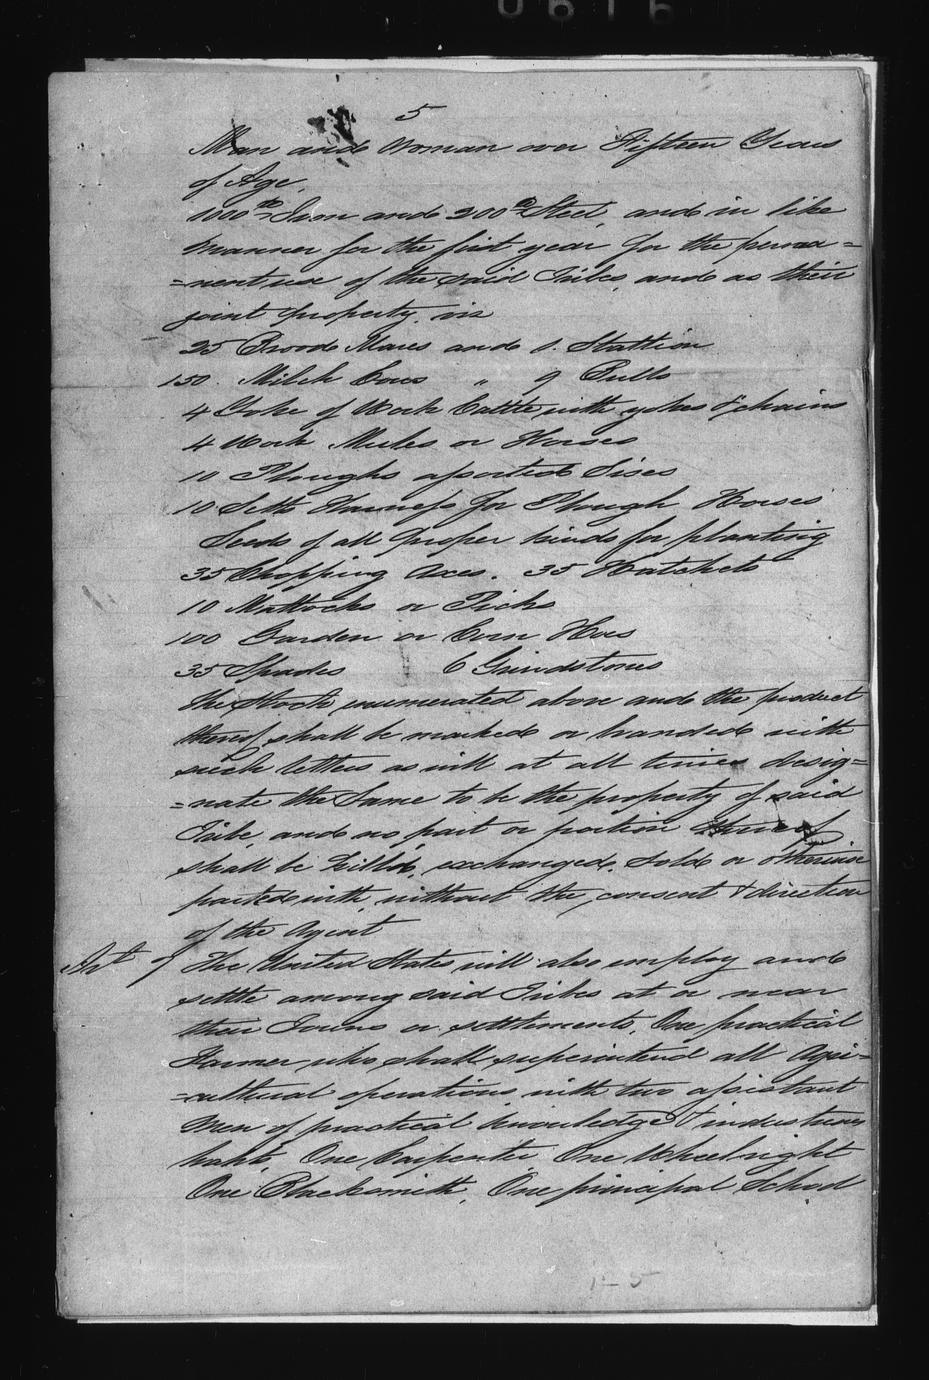 0616
5
Man and Woman over Fifteen Years
of Age,
1000 lbs Iron and 200 lbs Steel, and in like
manner for the first year, for the perma=
=nent use of the said Tribe, and as their
joint property, viz
25 Brood Mares and 1. Stallion
150. Milch Cows " 9 Bulls
4 Yoke of Work Cattle with yokes & chains
4 Work Mules or Horses
10 Ploughs assorted Sises
10 Setts Harness for Plough Horses
Seeds of all proper kinds for planting
35 Chopping Axes. 35 Hatchets
10 Mattocks or Picks
100 Garden or Corn Hoes
35 Spades 6 Grindstones
The Stock enumerated above and the product
thereof, shall be marked or branded with
such letters as will at all times desig=
=nate the Same to be the property of said
Tribe, and no part or portion thereof
shall be killed, exchanged, Sold or otherwise
parted with, without the consent & direction
of the Agent
Art 7 The United States will also employ and
settle among said Tribes at or near
their Towns or settlements, One practical
Farmer, who shall superintend all Agri=
=cultural operations with two assistant
Men of practical knowledge & industrious
habits, One Carpenter One Wheelright
One Blacksmith, One principal School
1-5